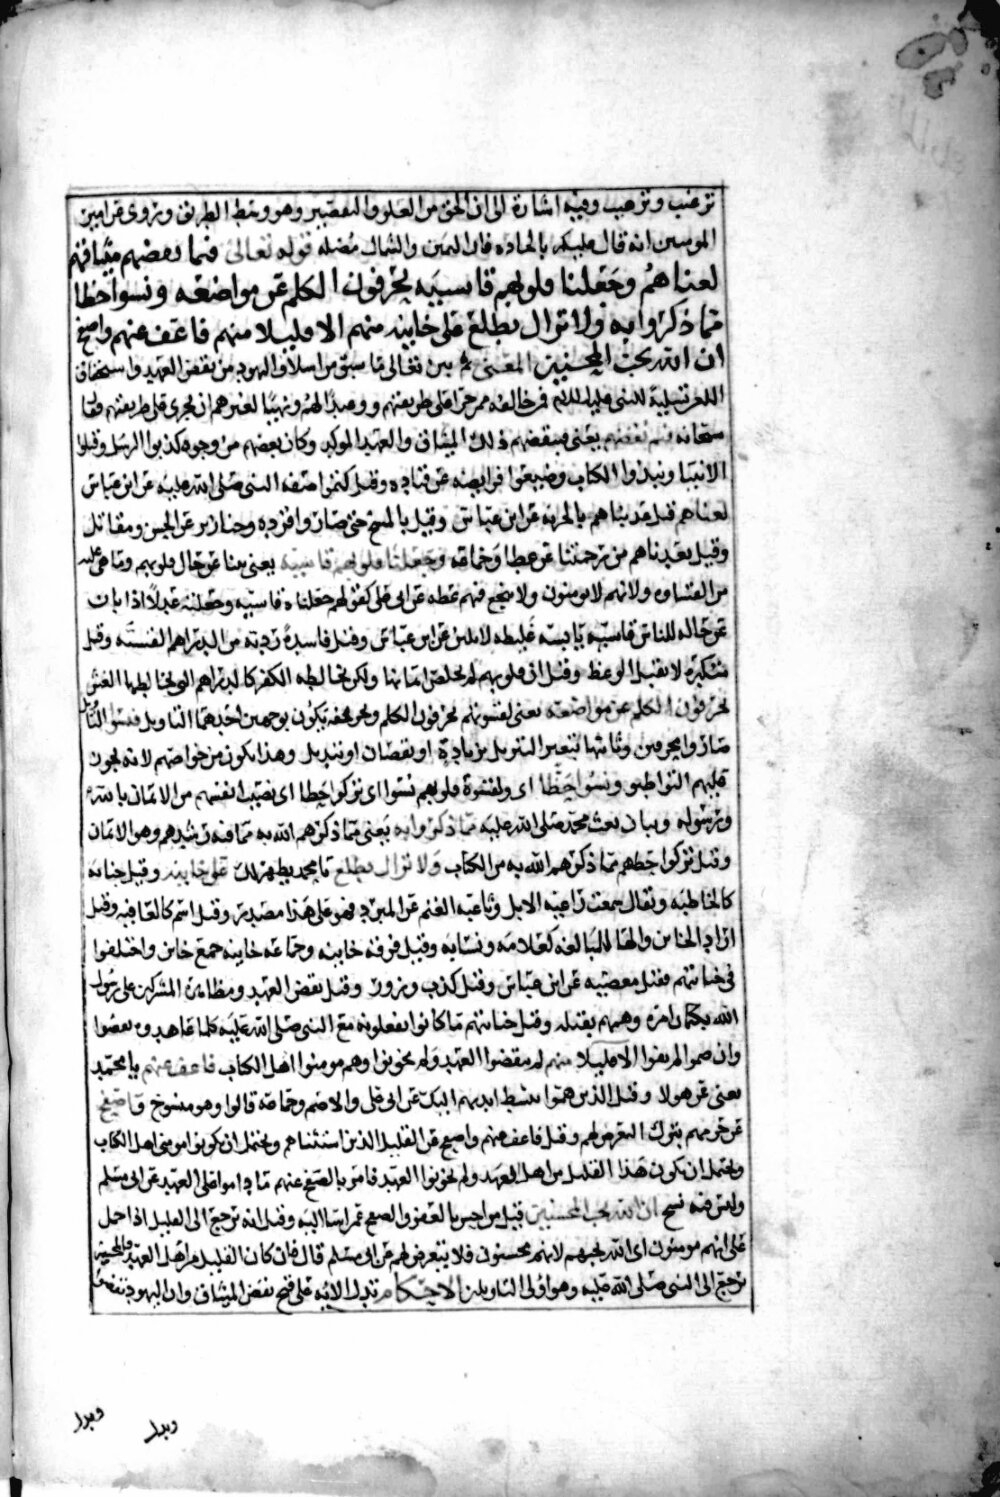 ترغيب وترهيب وفيه اشارة الى ان الحق بين الغلو والتقصير وهو وسط الطريق وتروى عن امير
المومنين انه قال عليكم بالجاده فان اليمين والشمال مضله قوله تعالى فبما نقضهم ميثاقهم
لعناهم وجعلنا قلوبهم قاسيه يحرفون الكلم عن مواضعه ونسوا حظا
مما ذكروا به ولا تزال تطلع على خاينه منهم الا قليلا منهم فاعف عنهم واصفح
ان الله يحب المحسنين المعنى ثم بين تعالى ما سبق من اسلاف اليهود من نقض العهد واستحقاق
اللعن تسلية للنبي عليه السلم فمن خالفه ممن جرا على طريقتهم ووعيدا لهم وتنبيها لغيرهم ان يجرى على طريقتهم فقال
سبحانه فبما نقضهم يعني فبنقضهم ذلك الميثاق والعهد الموكد وكان نقضهم من وجوه كذبوا الرسل وقتلوا
الانبيا ونبذوا الكتاب وضيعوا فرايضه عن قتاده وقيل كتموا صفه النبي صلى الله عليه عن ابن عباس
لعناهم قيل عذبناهم بالجزيه عن ابن عباس وقيل بالمسخ حتى صاروا قرده وخنازير عن الحسن ومقاتل
وقيل بعدناهم من رحمتنا عن عطا وجماعه وجعلنا قلوبهم قاسيه يعني بينا عن حال قلوبهم وما هي عليه
من القساوه ولانهم لا يومنون ولا ينجع فيهم عظه عن ابي علي كقولهم جعلناه فاسيه وجعلته عدلا اذا بان
عن حاله للناس قاسيه يابسه غليظه لا تلين عن ابن عباس وقيل فاسدة رديه من الدراهم القسيه وقيل
متكبره لا تقبل الوعظ وقيل ان قلوبهم لم تخلص ايمانها ولكن يخالطه الكفر كالدراهم التي يخالطها الغش
يحرفون الكلم عن مواضعه يعني لقسوتهم يحرفون الكلم وتحريفه يكون بوجهين احدهما التاويل فيسوا التاويل
صاروا يحرفين وثانيها بتغيير التنزيل بزيادة او نقصان او تبديل وهذا يكون من خواصهم لانه يجوز
عليهم التواطئ ونسوا حظا اى ولقسوة قلوبهم نسوا اى تركوا حظا اى نصيب انفسهم من الايمان بالله
ورسوله وبيان بعث محمد صلى الله عليه مما ذكروا به يعني مما ذكرهم الله به مما فيه رشدهم وهو الايمان
وقيل تركوا حظهم مما ذكرهم الله به من الكتاب ولا تزال تطلع يا محمد يظهر لك على خاينه وقيل خيانه
كالخاطيه وتقال سمعت راغيه الابل وثاغيه الغنم عن المبرد فهو على هذا مصدر وقيل اسم كالعافيه وقيل
اراد الخاين والها للمبالغه كعلامه ونسابه وقيل فرقه خاينه وجماعه خاينه جمع خاين واختلفوا
في خيانتهم فقيل معصيه عن ابن عباس وقيل كذب وزور وقيل نقض العهد ومظاهرة المشركين على رسول
الله بكتمان امره وهمهم بقتله وقيل خيانتهم ما كانوا يفعلونه مع النبي صلى الله عليه كلما عاهدوه نقضوا
وان ضمنوا لم يفوا الا قليلا منهم لم ينقضوا العهد ولم يخونوا وهم مومنوا اهل الكتاب فاعف عنهم يا محمد
يعني عن هولا وقيل الذين هموا ببسط ايديهم اليك عن ابي علي والاصم وجماعه قالوا وهو منسوخ واصفح
عن جرمهم بترك التعرض لهم وقيل فاعف عنهم واصفح عن القليل الذين استثناهم ويحتمل ان يكونوا مومني اهل الكتاب
ويحتمل ان يكون هذا القليل من اهل العهد ولم يخونوا العهد فامر بالصفح عنهم ما داموا على العهد عن ابي مسلم
وليس فيه نسخ ان الله يحب المحسنين قيل من احسن بالعفو والصفح عمن اسا اليه وقيل انه ترجع الى القليل اذا حمل
على انهم مومنون اى الله يحبهم لانهم محسنون فلا تتعرض لهم عن ابي مسلم قال فان كان القليل من اهل العهد والمحسنين
ترجع الى النبي صلى الله عليه وهو اولى التاويلين الاحكام تدل الايه على قبح نقض الميثاق وان اليهود نقضوا
وبدل
وبدل